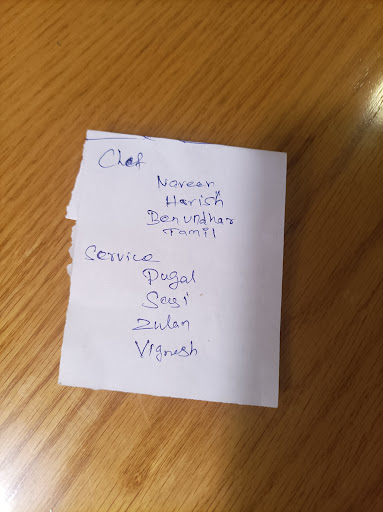 Chef
Naveen
Harish
Benundhar
Tamil
Service
Pugal
Sesi
Zulan
Vignesh